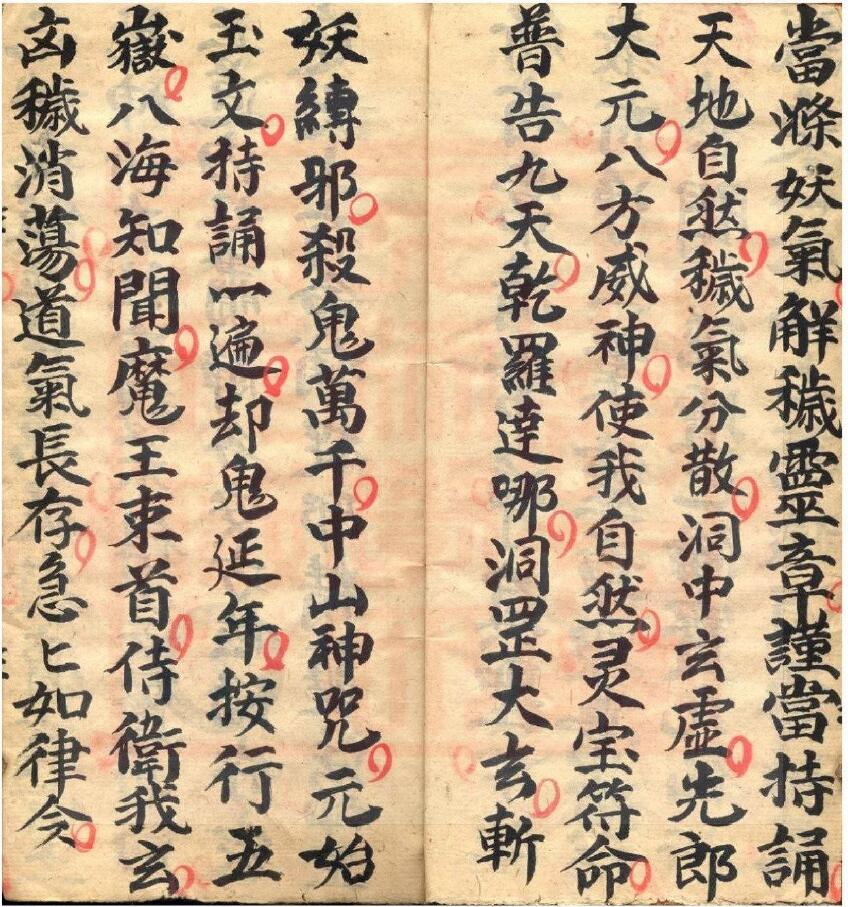 當滌妖氣解穢靈章謹當持誦
天地自然穢氣分散洞中玄虛先郎
大元八方威神使我自然灵宝符命
普告九天乾羅達哪洞罡大玄斬
妖縛邪殺鬼萬千中山神咒元始
玉文持誦一遍却鬼延年按行五
嶽八海知聞魔王束首侍衛我玄
凶穢消蕩道氣長存急匕如律令